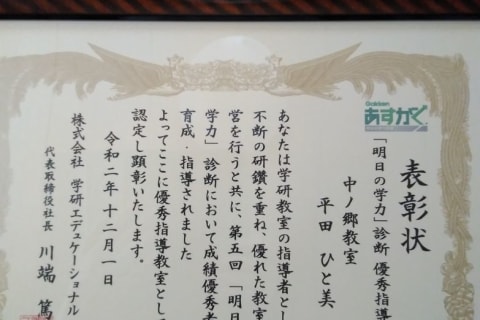 表彰状
Gakken
あすがく
「明日の学力」診断 優秀指導
中ノ郷教室
平田 ひと美
あなたは学研教室の指導者とし
不断の研鑽を重ね、優れた教室
営を行うと共に、第五回「明日
学力」診断において成績優秀者
育成・指導されました
よってここに優秀指導教室として
認定し顕彰いたします。
令和二年十二月一日
株式会社 学研エデュケーショナル
代表取締役社長 川端 篤